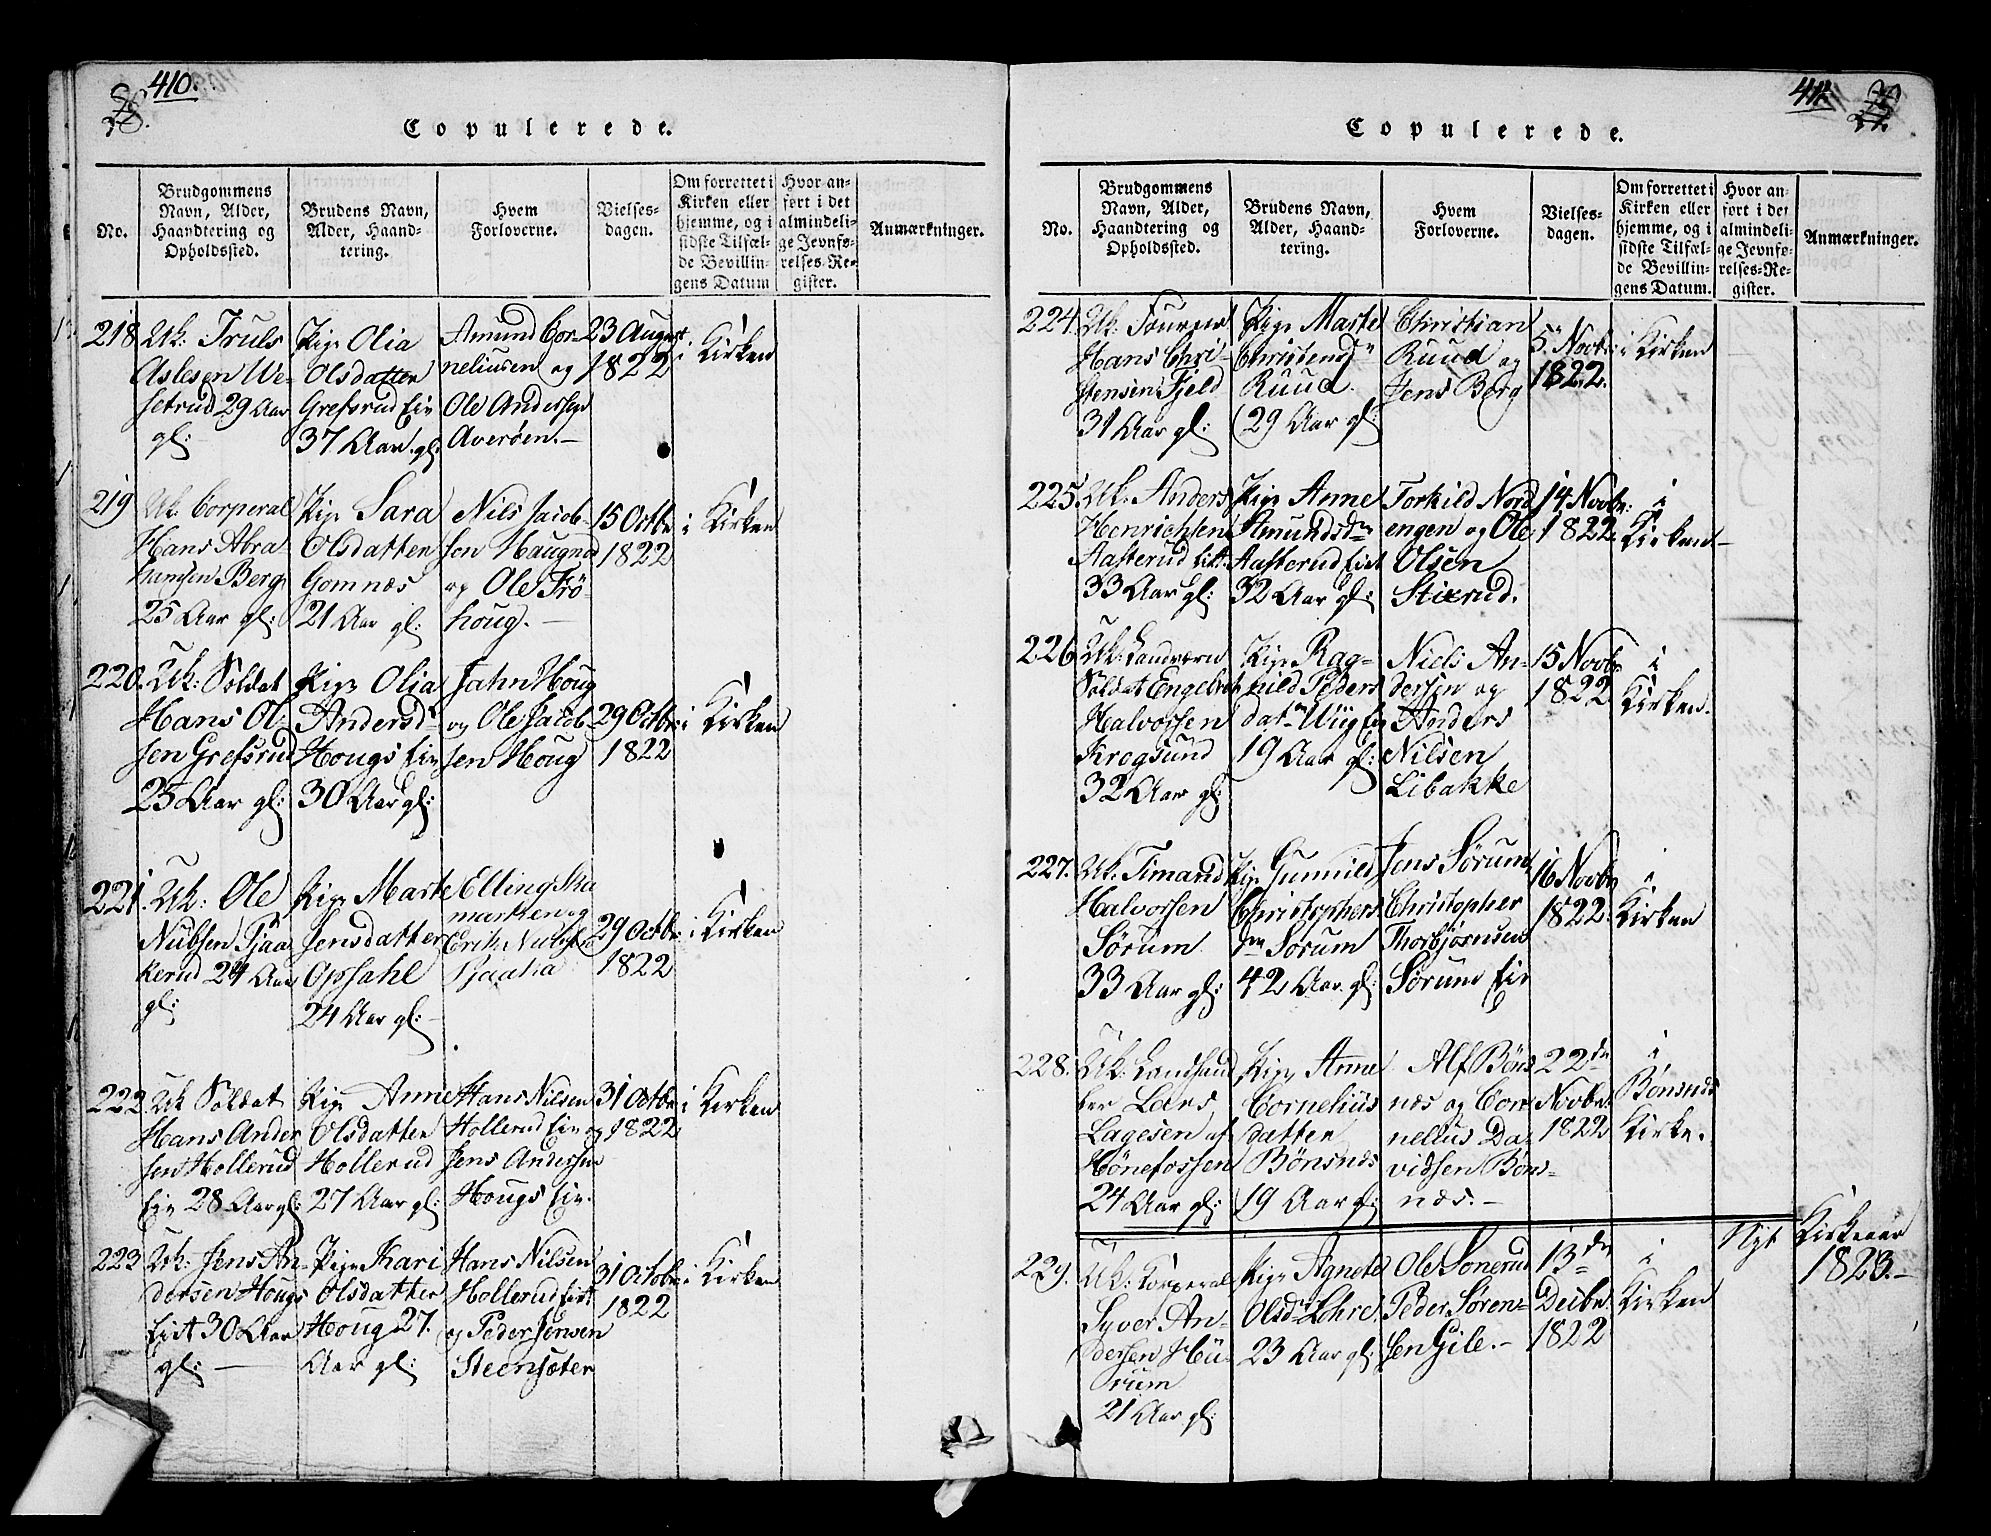 410.
28.
Copulerede.
No.
Brudgommens
Navn, Alder,
Haandtering og
Opholdssted.
Brudens Navn,
Alder, Haand-
tering.
Hvem
Forloverne.
Vielses-
dagen.
Om forrettet i
Kirken eller
hjemme, og i
sidste Tilfæl-
de Bevillin-
gens Datum
Hvor an-
ført i det
almindeli-
ge Jevnfø-
relses-Re-
gister.
Anmærkninger.
218
Uk: Truls
Aslesen We-
setrud 29 Aar
gl:
Pige Olia
Olsdatter
Grefsrud Eie
37 Aar gl:
Amund Cor-
neliusen og
Ole Anderssen
Averøen.-
23 August
1822
i Kirken
219
Uk. Corperal
Hans Abra-
hamsen Berg
25 Aar gl:
Pige Sara
Olsdatter
Gomnæs
21 Aar gl:
Nils Jacob-
sen Haugned
og Ole Frö-
houg.-
15 Octbr
1822
i Kirken
220.
Uk: Soldat
Hans Ol-
sen Grefsrud
25 Aar gl:
Pige Olia
Andersd-
Hougs Eie
30 Aar gl:
Jahn Houg
og Ole Jacob-
sen Houg
29 Octbr
1822
i Kirken
221.
Uk: Ole
Nubsen Tjaa
kerud 24 Aar
gl:
Pige Marte
Jensdatter
Opsahl
24 Aar gl:-
Elling Ska
marken og
Erik
29 Octbr
1822
i Kirken
222
Uk Soldat
Hans Ander
sen Hollerud
Eie 28 Aar gl:
Pige Anne
Olsdatter
Hollerud
27 Aar gl:
Hans Nilsen
Hollerud Eie og
Jens Andersen
Hougs Eie.
31 Octbr
1822
i Kirken
223
Uk: Jens An-
dersen Hougs
Eiet 30 Aar
gl: -
Pige Kari
Olsdatter
Houg 27.
Aar gl:
Hans Nilsen
Hollerud Eiet
og Peder Jensen
Steensæter
31 Octobr
1822
i Kirken
411.
Copulerede.
No.
Brudgommens
Navn, Alder,
Haandtering og
Opholdssted.
Brudens Navn,
Alder, Haand-
tering.
Hvem
Forloverne.
Vielses-
dagen.
Om forrettet i
Kirken eller
hjemme, og i
sidste Tilfæl-
de Bevillin-
gens Datum.
Hvor an-
ført i det
almindeli-
ge Jevnfø-
relses-Re-
gister.
Anmærkninger.
224.
Uk: Fourer
Hans Chri-
stensen Fjeld
31 Aar gl:
Pige Marte
Christensd
Ruud.
29 Aar gl:
Christian
Ruud og
Jens Berg
5. Novbr
1822.
i Kirken
225.
Uk. Anders
Henrichsen
Aasterud Eiet
33 Aar gl:
Pige Anne
Amundsdr
Aasterud Eiet
32 Aar gl:
Torkild Nord
engen og Ole
Olsen
Stixrud.
14 Novbr:
1822
i
Kirken.-
226
Uk: Landværn
Soldat Engebret
Halvorsen
Krogsund
32 Aar gl:
Pige Rag-
nild Peders
datr Wiig Eie
19 Aar gl:
Niels An-
dersen og
Anders
Nilsen
Libakke
15 Novbr
1822
i
Kirken.
227.
Uk. Timand
Halvorsen
Sørum
33 Aar gl:
Pige Gunnild
Christophers
dr Sørum
42 Aar gl:
Jens Sørum
Christopher
Thorbjørnsen
Sørum Eie
16 Novbr
1822.
i
Kirken
228.
Uk. Landhand
ler Lars
Lagesen af
Hönefossen
24 Aar gl:
Pige Anne
Cornelius
datter
Bönsnæs
19 Aar gl:
Alf Böns
næs og Cor
nelius Da-
vidsen Böns-
næs.-
22de
Novbr:
1822
i
Bönsnæs
Kirke.
Nyt Kirkeaar
1823.-
229.
Uk: Corperal
Syver An-
dersen Hu-
rum
21 Aar gl:
Pige Agnete
Olsdr Lohre
23 Aar gl:
Ole Sonerud
Peder Sören-
sen Gile.-
13de
Decbr
1822
i
Kirken